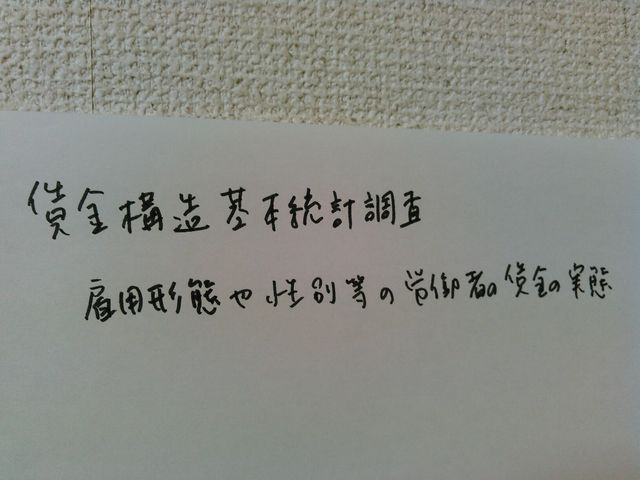 賃金構造基本統計調査
雇用形態や性別等の労働者の賃金の実態